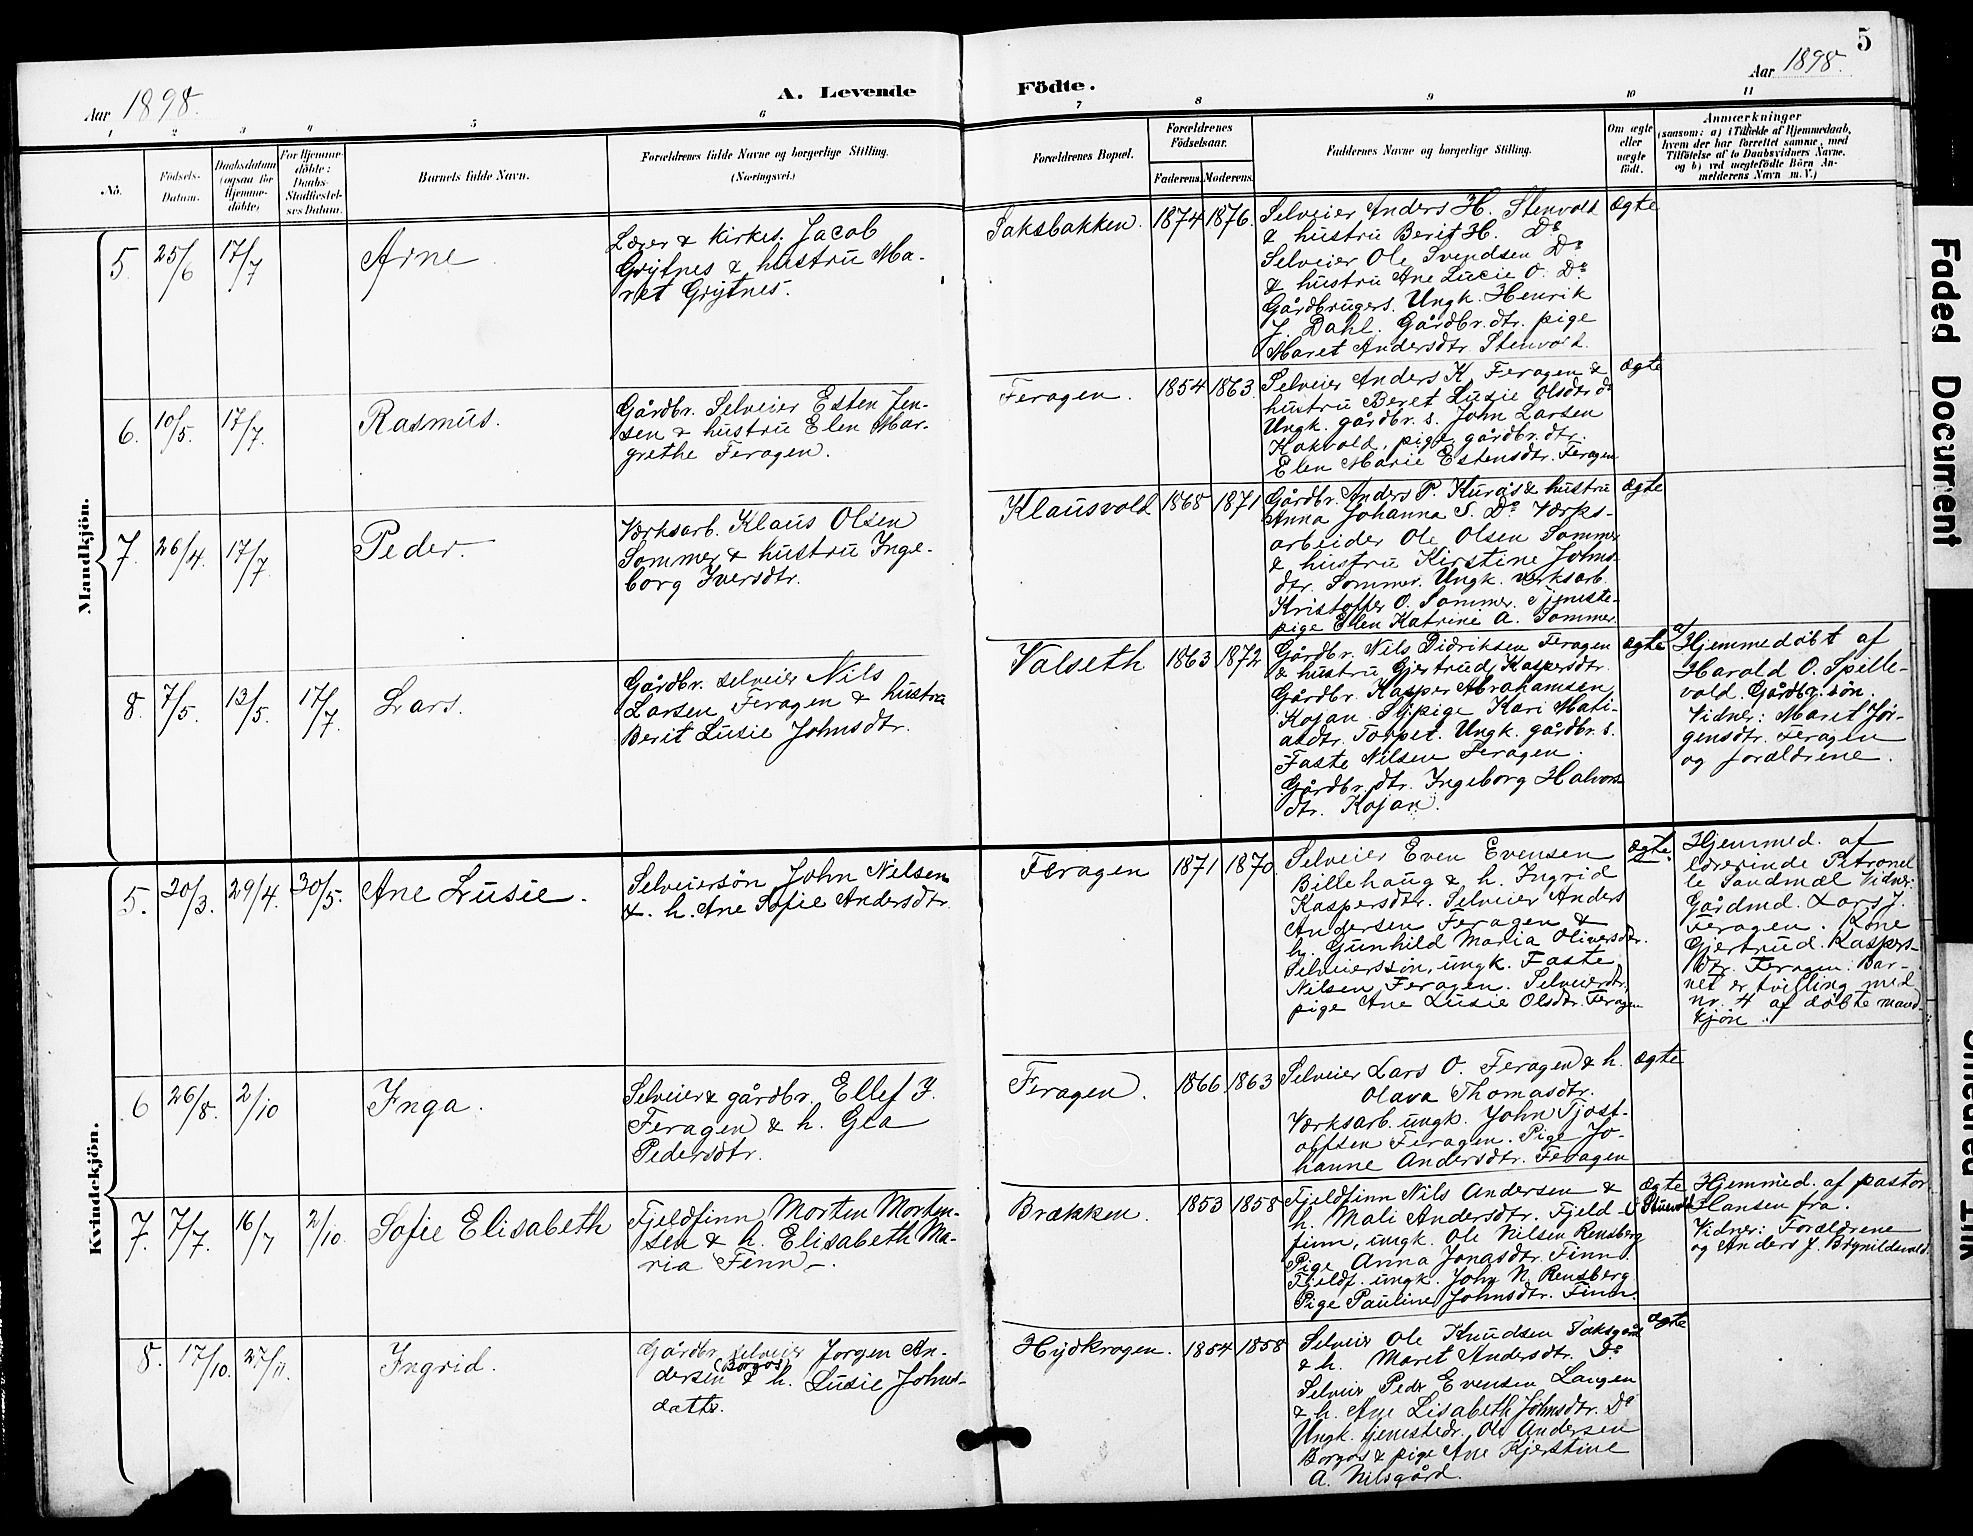 5
Aar 1898.
A. Levende
Födte.
Aar 1898.
1 2 3 4 5 6 7 8 9 10 11
No.
Födsels-
Datum.
Daabsdatum
(ogsaa for
Hjemme-
döbte)
For Hjemme-
döbte:
Daabs-
Stadfæstel-
ses Datum.
Barnets fulde Navn.
Forældrenes fulde Navne og borgerlige Stilling.
(Næringsvei.)
Forældrenes Bopæl.
Forældrenes
Födselsaar.
Faderens. Moderens.
Faddernes Navne og borgerlige Stilling.
Om ægte
eller
uægte
födt.
Anmærkninger
(saasom: a) i Tilfælde af Hjemmedaab,
hvem der har forrettet samme, med
Tilföielse af to Daabsvidners Navne,
og b) ved uægtefödte Börn An-
melderens Navn m. V.)
Mandkjön.
5. 25/6 17/7
Arne
Lærer & kirkes. Jacob
Grytnes & hustru Ma-
ret Grytnes.
Saksbakken. 1874 1876.
Selveier Anders H. Stenvold
& hustru Berit H. Do
Selveier Ole Svendsen Do
& hustru Ane Lucie O. Do
Gårdbrugers. Ungk. Henrik
J. Dahl. Gårdbr.dtr. pige
Maret Andersdtr Stenvold.
ægte
6. 10/5. 17/7.
Rasmus.
Gårdbr. Selveier Esten Jen-
sen & hustru Elen Mar-
grethe Feragen.
Feragen. 1854 1863.
Selveier Anders K. Feragen &
hustru Beret Lusie Olsdtr do
Ungk. gårdbr. s. John Larsen
Kokvold, pige gårdbr.dtr.
Elen Marie Estensdtr. Feragen
ægte
7. 26/4. 17/7.
Peder.
Værksarb. Klaus Olsen
Sommer & hustru Inge-
borg Iversdtr.
Klausvold 1868 1871
Gårdbr. Anders P. Kurås & hustru
Anna Johanna S. Do Værks-
arbeider Ole Olsen Sommer
& hustru Kirstine Johns-
dtr. Sommer. Ungk. verksarb.
Kristoffer O. Sommer. Tjeneste-
pige Elen Katrine A. Sommer
ægte
8. 7/5. 13/5. 17/7.
Lars.
Gårdbr. selveier Nils
Larsen Feragen & hustru
Berit Lusie Johnsdtr.
Valseth 1863 1872
Gårdbr. Nils Didriksen Feragen
& hustru Gjertrud Kaspersdtr.
Gårdbr. Kasper Abrahamsen
Kojan. Tjpige Kari Mati-
asdtr. Torpet. Ungk. gårdbr. s.
Faste Nilsen Feragen.
Gårdbr. dtr. Ingeborg Halvors-
dtr. Kojan.
ægte
a/ Hjemmedøbt af
Harald O. Spille-
vold. Gårdbr. søn.
Vidner: Maret Jør-
gensdtr. Feragen
og forældrene.
Kvindekjön.
5. 20/3. 29/4. 30/5.
Ane Lusie.
Selveiersøn John Nilsen
& h. Ane Sofie Andersdtr.
Feragen 1871 1870
Selveier Even Evensen
Billehaug & h. Ingrid
Kaspersdtr. Selveier Anders
Andersen Feragen &
h. Gunhild Maria Oliversdtr.
Selveierssøn, ungk. Faste
Nilsen Feragen. Selveierdtr.
pige Ane Lusie Olsdtr. Feragen
ægte.
Hjemmed. af
lærerinde Petronel-
le Sandmæl Vidner:
Gårdmd. Lars J.
Feragen. Kone
Gjertrud Kaspers-
dtr. Feragen. Bar-
net er tvilling med
nr. 4 af døbte mand-
kjøn.
6 26/8. 2/10
Inga.
Selveier & gårdbr. Ellef J.
Feragen & h. Gea
Pedersdtr.
Feragen. 1866 1863
Selveier Lars O. Feragen & h.
Olava Thomasdtr.
Værksarb. ungk. John Tjost-
olfsen Feragen. Pige Jo-
hanne Andersdtr. Feragen
ægte
7. 7/7. 16/7 2/10.
Sofie Elisabeth
Fjeldfinn Morten Morten-
sen & h. Elisabeth Ma-
ria Finn –.
Brækken. 1853 1858
Fjeldfinn Nils Andersen &
h. Mali Andersdtr. Fjeld-
finn, ungk. Ole Nilsen Rensberg
Pige Anna Jonasdtr. Finn.
Fjeldf. ungk. John N. Rensberg
Pige Pauline Johnsdtr. Finn.
ægte
Hjemmed. af pastor
Hansen fra.
Vidner: Forældrene
og Anders J. Brynildsvold.
8. 17/10. 27/11.
Ingrid.
Gårdbr. selveier Jørgen An-
dersen (Borgos) & h. Lusie Johns-
datter.
Hydkrogen. 1854 1858
Selveier Ole Knudsen Taksgård
& h. Maret Andersdtr. Do
Selveier Pedr Evensen Langen
& h. Ane Lisabeth Johnsdtr. Do
Ungk. tjenestedr. Ole Andersen
Borgos & pige Ane Kjerstine
A. Nilsgård.
ægte
Faded Document